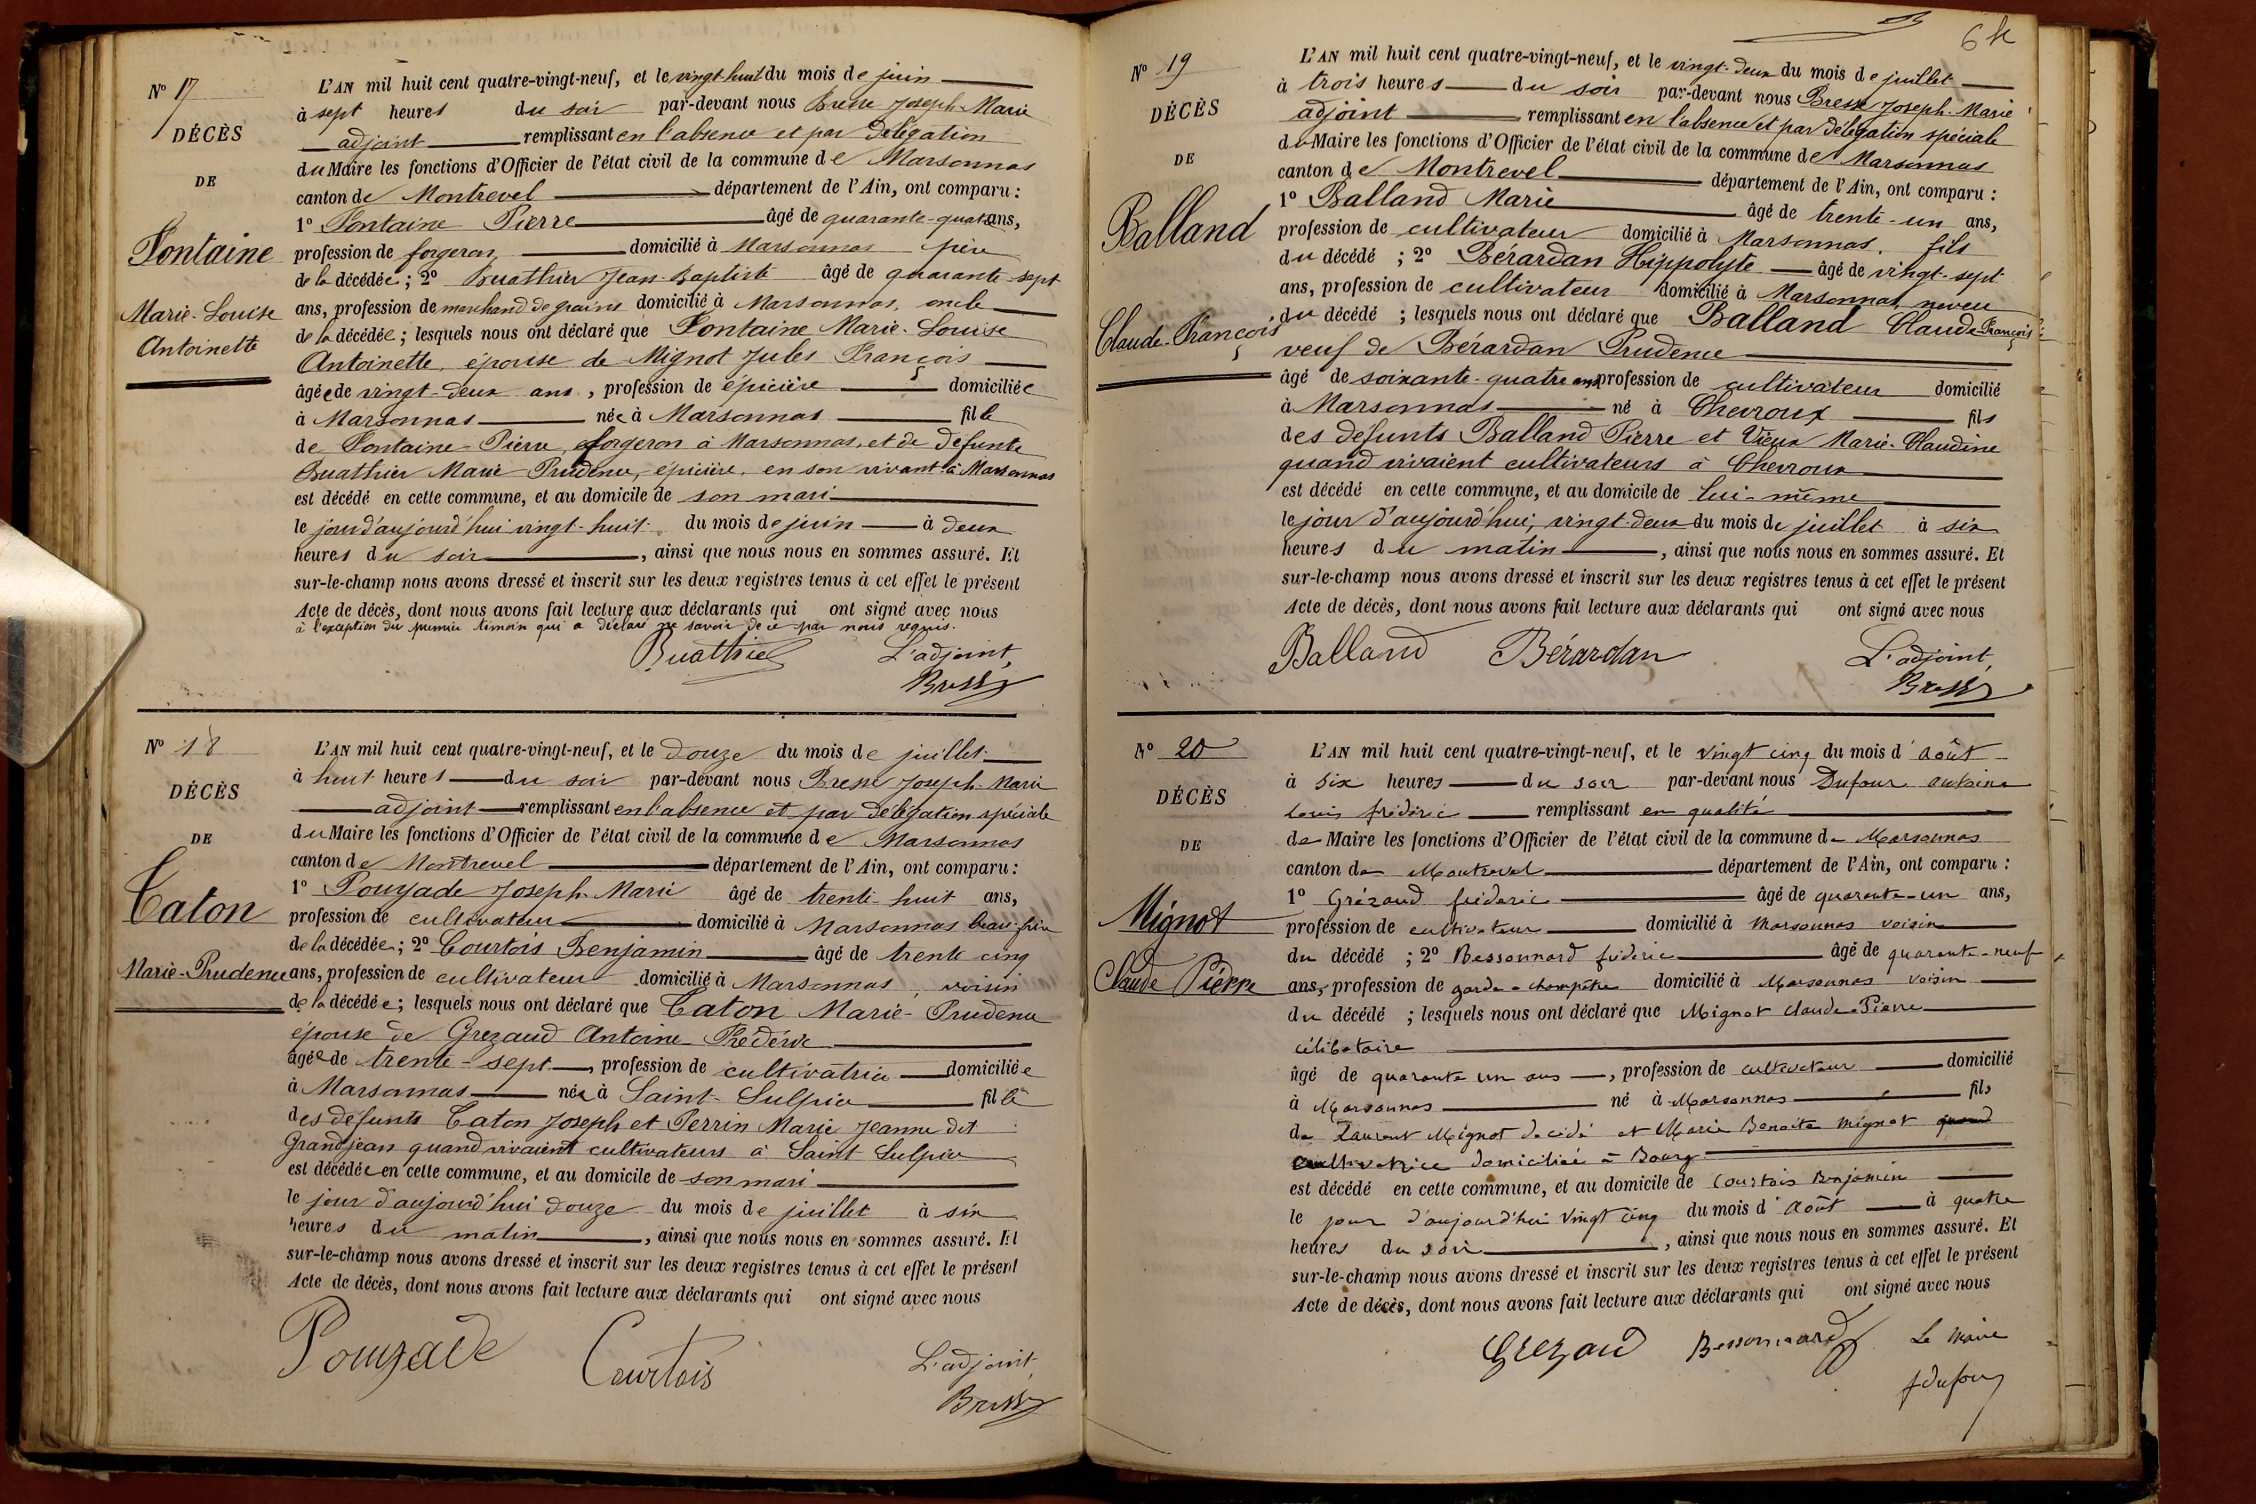 Nº 17
DÉCÈS
DE
Fontaine
Marie-Louise
Antoinette
L'AN mil huit cent quatre-vingt-neuf, et le vingt-huit du mois de juin
à sept heures du soir par-devant nous Bresse Joseph-Marie
adjoint remplissant en l'absence et par délégation
du Maire les fonctions d'Officier de l'état civil de la commune de Marsonnas
canton de Montrevel département de l'Ain, ont comparu :
1º Fontaine Pierre âgé de quarante-quatre ans,
profession de forgeron domicilié à Marsonnas père
de la décédée ; 2º Buathier Jean-Baptiste âgé de quarante-sept
ans, profession de marchand de grains domicilié à Marsonnas, oncle
de la décédée ; lesquels nous ont déclaré que Fontaine Marie-Louise
Antoinette, épouse de Mignot Jules François
âgée de vingt-deux ans, profession de épicière domiciliée
à Marsonnas née à Marsonnas fille
de Fontaine Pierre, forgeron à Marsonnas, et de défunte
Buathier Marie Prudence, épicière, en son vivant à Marsonnas
est décédé en cette commune, et au domicile de son mari
le jour d'aujourd'hui vingt-huit du mois de juin à deux
heures du soir, ainsi que nous nous en sommes assuré. Et
sur-le-champ nous avons dressé et inscrit sur les deux registres tenus à cet effet le présent
Acte de décès, dont nous avons fait lecture aux déclarants qui ont signé avec nous
à l'exception du premier témoin qui a déclaré ne savoir de ce par nous requis.
Buathier L'adjoint,
Bresse
Nº 18
DÉCÈS
DE
Caton
Marie-Prudence
L'AN mil huit cent quatre-vingt-neuf, et le douze du mois de juillet
à huit heures du soir par-devant nous Bresse Joseph-Marie
adjoint remplissant en l'absence et par délégation spéciale
du Maire les fonctions d'Officier de l'état civil de la commune de Marsonnas
canton de Montrevel département de l'Ain, ont comparu :
1º Pouyade Joseph-Marie âgé de trente-huit ans,
profession de cultivateur domicilié à Marsonnas beau-frère
de la décédée ; 2º Courtois Benjamin âgé de trente cinq
ans, profession de cultivateur domicilié à Marsonnas, voisin
de la décédée ; lesquels nous ont déclaré que Caton Marie-Prudence
épouse de Grezaud Antoine Frédéric
âgée de trente-sept, profession de cultivatrice domiciliée
à Marsonnas née à Saint-Sulpice fille
des défunts Caton Joseph et Perrin Marie Jeanne dit
Grandjean quand vivaient cultivateurs à Saint Sulpice
est décédée en cette commune, et au domicile de son mari
le jour d'aujourd'hui douze du mois de juillet à six
heures du matin, ainsi que nous nous en sommes assuré. Et
sur-le-champ nous avons dressé et inscrit sur les deux registres tenus à cet effet le présent
Acte de décès, dont nous avons fait lecture aux déclarants qui ont signé avec nous
Pouyade Courtois L'adjoint,
Bresse
Nº 19
DÉCÈS
DE
Balland
Claude-François
L'AN mil huit cent quatre-vingt-neuf, et le vingt-deux du mois de juillet
à trois heures du soir par-devant nous Bresse Joseph-Marie
adjoint remplissant en l'absence et par délégation spéciale
du Maire les fonctions d'Officier de l'état civil de la commune de Marsonnas
canton de Montrevel département de l'Ain, ont comparu :
1º Balland Marie âgé de trente-un ans,
profession de cultivateur domicilié à Marsonnas, fils
du décédé ; 2º Bérardan Hippolyte âgé de vingt-sept
ans, profession de cultivateur domicilié à Marsonnas neveu
du décédé ; lesquels nous ont déclaré que Balland Claude-François
veuf de Bérardan Prudence
âgé de soixante-quatre ans profession de cultivateur domicilié
à Marsonnas né à Chevroux fils
des défunts Balland Pierre et Vieux Marie-Claudine
quand vivaient cultivateurs à Chevroux
est décédé en cette commune, et au domicile de lui-même
le jour d'aujourd'hui, vingt-deux du mois de juillet à six
heures du matin, ainsi que nous nous en sommes assuré. Et
sur-le-champ nous avons dressé et inscrit sur les deux registres tenus à cet effet le présent
Acte de décès, dont nous avons fait lecture aux déclarants qui ont signé avec nous
Balland Bérardan L'adjoint,
Bresse
Nº 20
DÉCÈS
DE
Mignot
Claude Pierre
L'AN mil huit cent quatre-vingt-neuf, et le vingt cinq du mois d'Août
à six heures du soir par-devant nous Dufour Antoine
Louis frédéric remplissant en qualité
de Maire les fonctions d'Officier de l'état civil de la commune de Marsonnas
canton de Montrevel département de l'Ain, ont comparu :
1º Grézaud fréderic âgé de quarante-un ans,
profession de cultivateur domicilié à Marsonnas voisin
du décédé ; 2º Bessonnard fréderic âgé de quarante-neuf
ans, profession de garde-champêtre domicilié à Marsonnas voisin
du décédé ; lesquels nous ont déclaré que Mignot Claude-Pierre
célibataire
âgé de quarante un ans, profession de cultivateur domicilié
à Marsonnas né à Marsonnas fils
de Laurent Mignot décédé et Marie Benoite Mignot quand
cultivatrice domiciliée à Bourg
est décédé en cette commune, et au domicile de Courtois Benjamin
le jour d'aujourd'hui vingt cinq du mois d'Août à quatre
heures du soir, ainsi que nous nous en sommes assuré. Et
sur-le-champ nous avons dressé et inscrit sur les deux registres tenus à cet effet le présent
Acte de décès, dont nous avons fait lecture aux déclarants qui ont signé avec nous
Grezaud Bessonnard Le Maire
fdufour